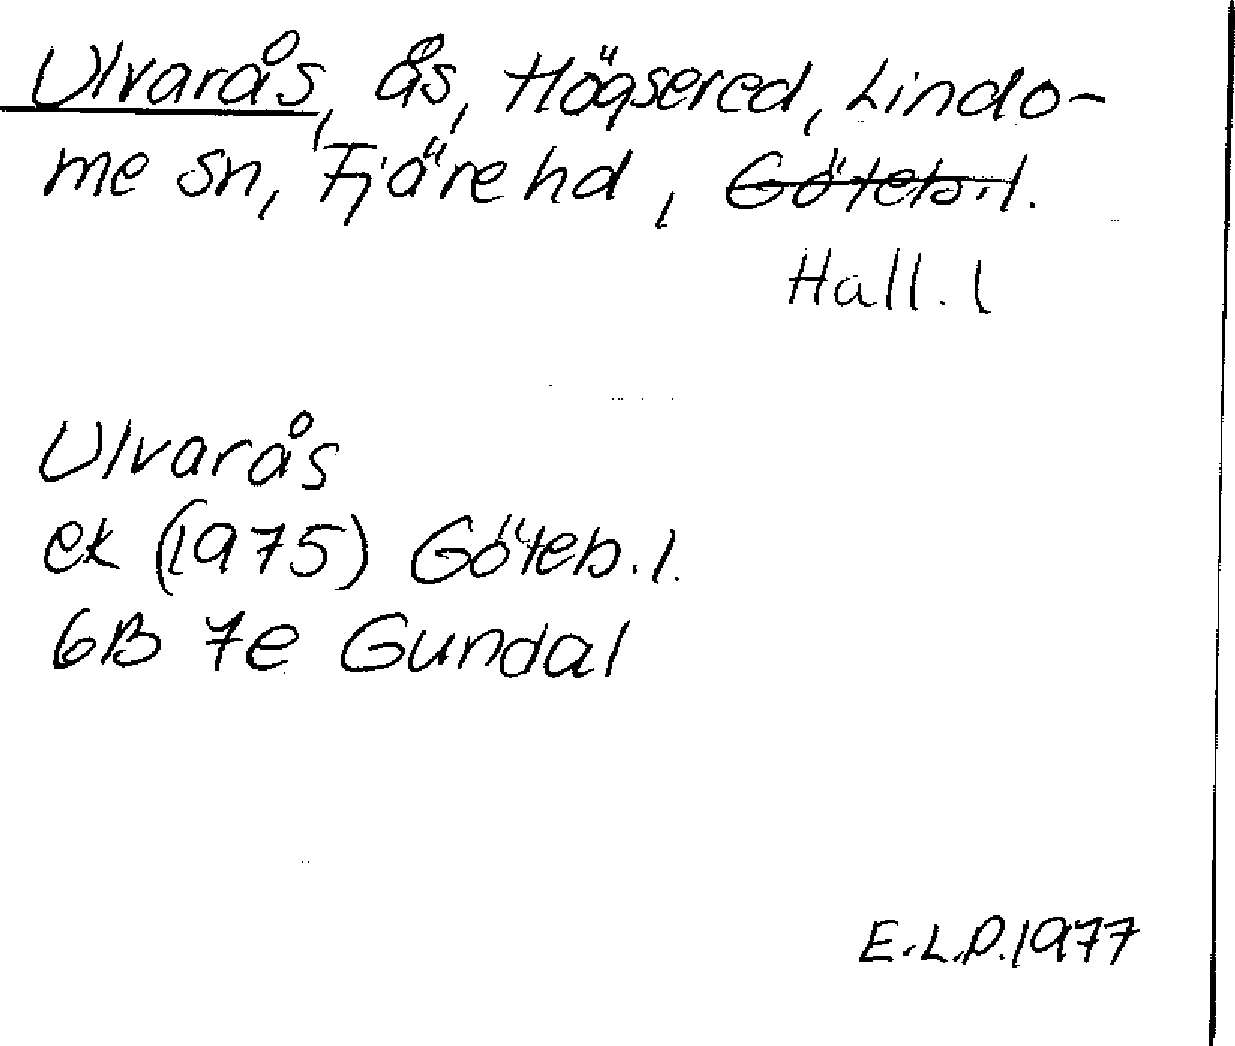 Ulvarås, ås, Högsered, Lindo-
me sn, Fjäre hd, Göteb. l.
Hall. l
Ulvarås
ek (1975) Göteb. l.
6B 7e Gundal
E.L.P. 1977